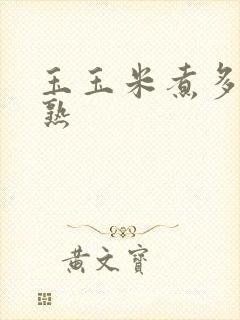 玉玉米煮多
熟
黄文寶